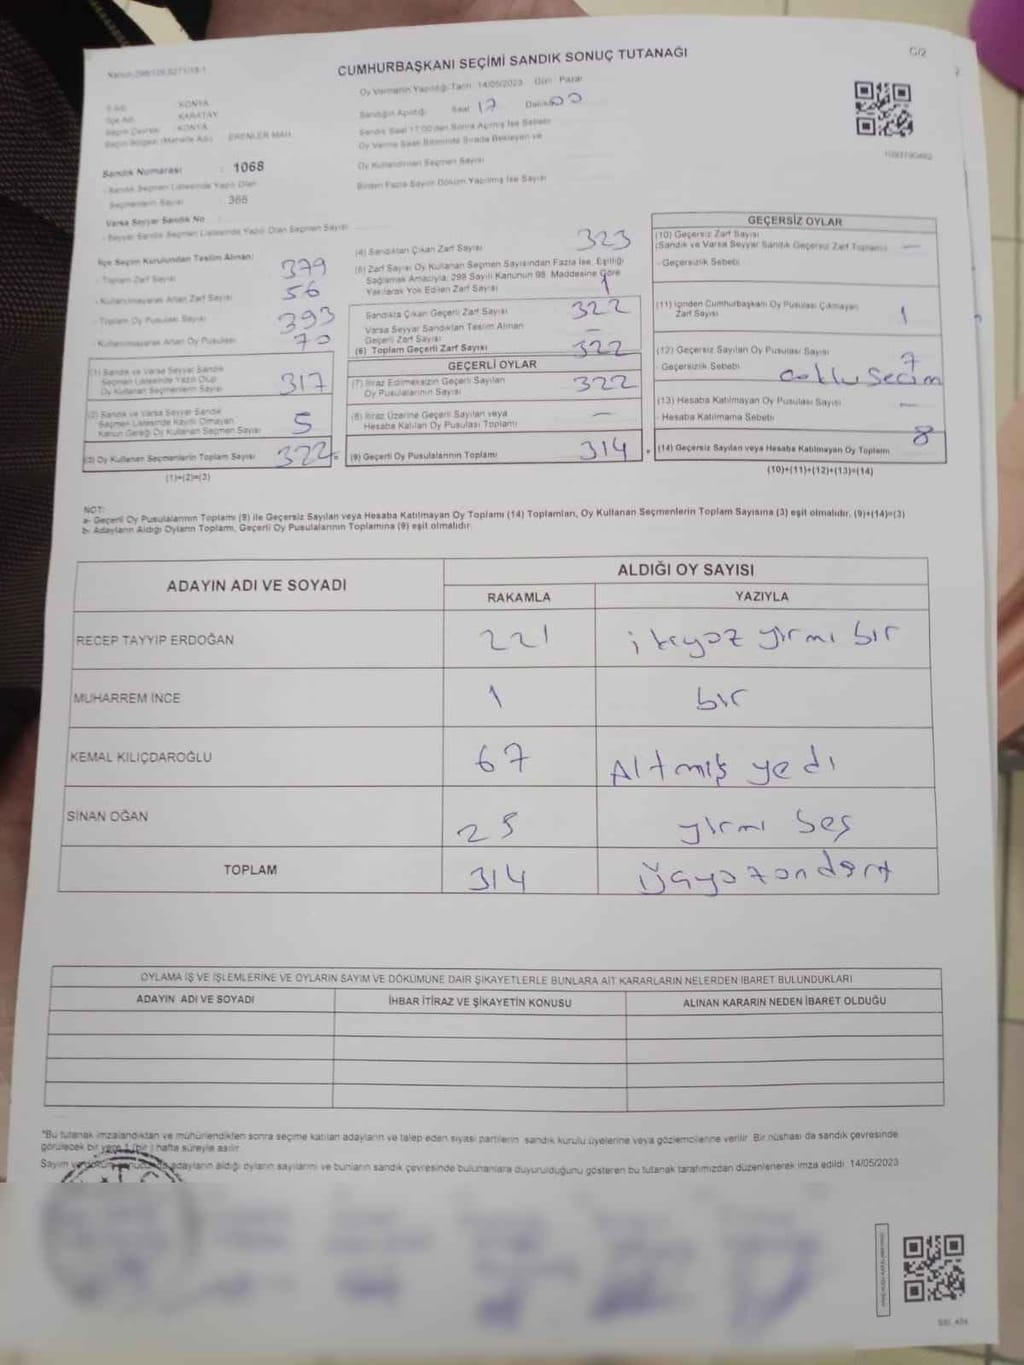 CUMHURBAŞKANI SEÇİMİ SANDIK SONUÇ TUTANAĞI
G/2
Oy Vermenin Yapıldığı Tarih: 14/05/2023 Gün: Pazar
İl Adı KONYA
İlçe Adı KARATAY
Seçim Çevresi KONYA
Seçim Bölgesi (Mahalle Adı) ERENLER MAH.
Sandığın Açıldığı Saat 17 Dakika 00
Sandık Saat 17:00'den Sonra Açılmış İse Sebebi
Oy Verme Saati Bitiminde Sırada Bekleyen ve
Oy Kullandırılan Seçmen Sayısı
Birden Fazla Sayım Döküm Yapılmış İse Sayısı
Sandık Numarası : 1068
- Sandık Seçmen Listesinde Yazılı Olan
Seçmenlerin Sayısı : 366
Varsa Seyyar Sandık No
- Seyyar Sandık Seçmen Listesinde Yazılı Olan Seçmen Sayısı
İlçe Seçim Kurulundan Teslim Alınan:
- Toplam Zarf Sayısı 379
- Kullanılmayarak Artan Zarf Sayısı 56
- Toplam Oy Pusulası Sayısı 393
- Kullanılmayarak Artan Oy Pusulası 70
(1) Sandık ve Varsa Seyyar Sandık
Seçmen Listesinde Yazılı Olup
Oy Kullanan Seçmenlerin Sayısı 317
(2) Sandık ve Varsa Seyyar Sandık
Seçmen Listesinde Kayıtlı Olmayan
Kanun Gereği Oy Kullanan Seçmen Sayısı 5
(3) Oy Kullanan Seçmenlerin Toplam Sayısı 322 =
(1)+(2)=(3)
(4) Sandıktan Çıkan Zarf Sayısı 323
(5) Zarf Sayısı Oy Kullanan Seçmen Sayısından Fazla İse, Eşitliği
Sağlamak Amacıyla, 298 Sayılı Kanunun 98. Maddesine Göre
Yakılarak Yok Edilen Zarf Sayısı 1
Sandıkta Çıkan Geçerli Zarf Sayısı 322
Varsa Seyyar Sandıktan Teslim Alınan
Geçerli Zarf Sayısı —
(6) Toplam Geçerli Zarf Sayısı 322
GEÇERLİ OYLAR
(7) İtiraz Edilmeksizin Geçerli Sayılan
Oy Pusulasının Sayısı 322
(8) İtiraz Üzerine Geçerli Sayılan veya
Hesaba Katılan Oy Pusulası Toplamı —
(9) Geçerli Oy Pusulalarının Toplamı 314 +
GEÇERSİZ OYLAR
(10) Geçersiz Zarf Sayısı
(Sandık ve Varsa Seyyar Sandık Geçersiz Zarf Toplamı) —
- Geçersizlik Sebebi
(11) İçinden Cumhurbaşkanı Oy Pusulası Çıkmayan
Zarf Sayısı 1
(12) Geçersiz Sayılan Oy Pusulası Sayısı 7
- Geçersizlik Sebebi çoklu seçim
(13) Hesaba Katılmayan Oy Pusulası Sayısı —
- Hesaba Katılmama Sebebi
(14) Geçersiz Sayılan veya Hesaba Katılmayan Oy Toplamı 8
(10)+(11)+(12)+(13)=(14)
NOT:
a- Geçerli Oy Pusulalarının Toplamı (9) ile Geçersiz Sayılan veya Hesaba Katılmayan Oy Toplamı (14) Toplamları, Oy Kullanan Seçmenlerin Toplam Sayısına (3) eşit olmalıdır, (9)+(14)=(3)
b- Adayların Aldığı Oyların Toplamı, Geçerli Oy Pusulalarının Toplamına (9) eşit olmalıdır.
ADAYIN ADI VE SOYADI
ALDIĞI OY SAYISI
RAKAMLA YAZIYLA
RECEP TAYYIP ERDOĞAN 221 ikiyüz yirmi bir
MUHARREM İNCE 1 bir
KEMAL KILIÇDAROĞLU 67 Altmış yedi
SİNAN OĞAN 25 yirmi beş
TOPLAM 314 üçyüzondört
OYLAMA İŞ VE İŞLEMLERİNE VE OYLARIN SAYIM VE DÖKÜMÜNE DAİR ŞİKAYETLERLE BUNLARA AİT KARARLARIN NELERDEN İBARET BULUNDUKLARI
ADAYIN ADI VE SOYADI İHBAR İTİRAZ VE ŞİKAYETİN KONUSU ALINAN KARARIN NEDEN İBARET OLDUĞU
*Bu tutanak imzalandıktan ve mühürlendikten sonra seçime katılan adayların ve talep eden siyasi partilerin sandık kurulu üyelerine veya gözlemcilerine verilir. Bir nüshası da sandık çevresinde
görülecek bir yere 1 (bir) hafta süreyle asılır.
Sayım ve döküm sonucunda adayların aldığı oyların sayılarını ve bunların sandık çevresinde bulunanlara duyurulduğunu gösteren bu tutanak tarafımızdan düzenlenerek imza edildi. 14/05/2023